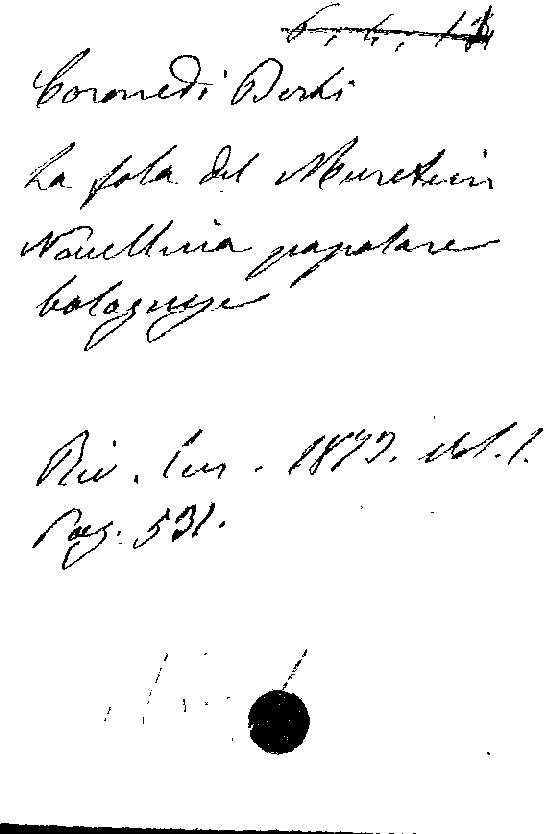 Coronedi Berti
La fola del Muretein
Novellina popolare
bolognese
Riv. Eur. 1873. Vol. 1.
Pag. 531.